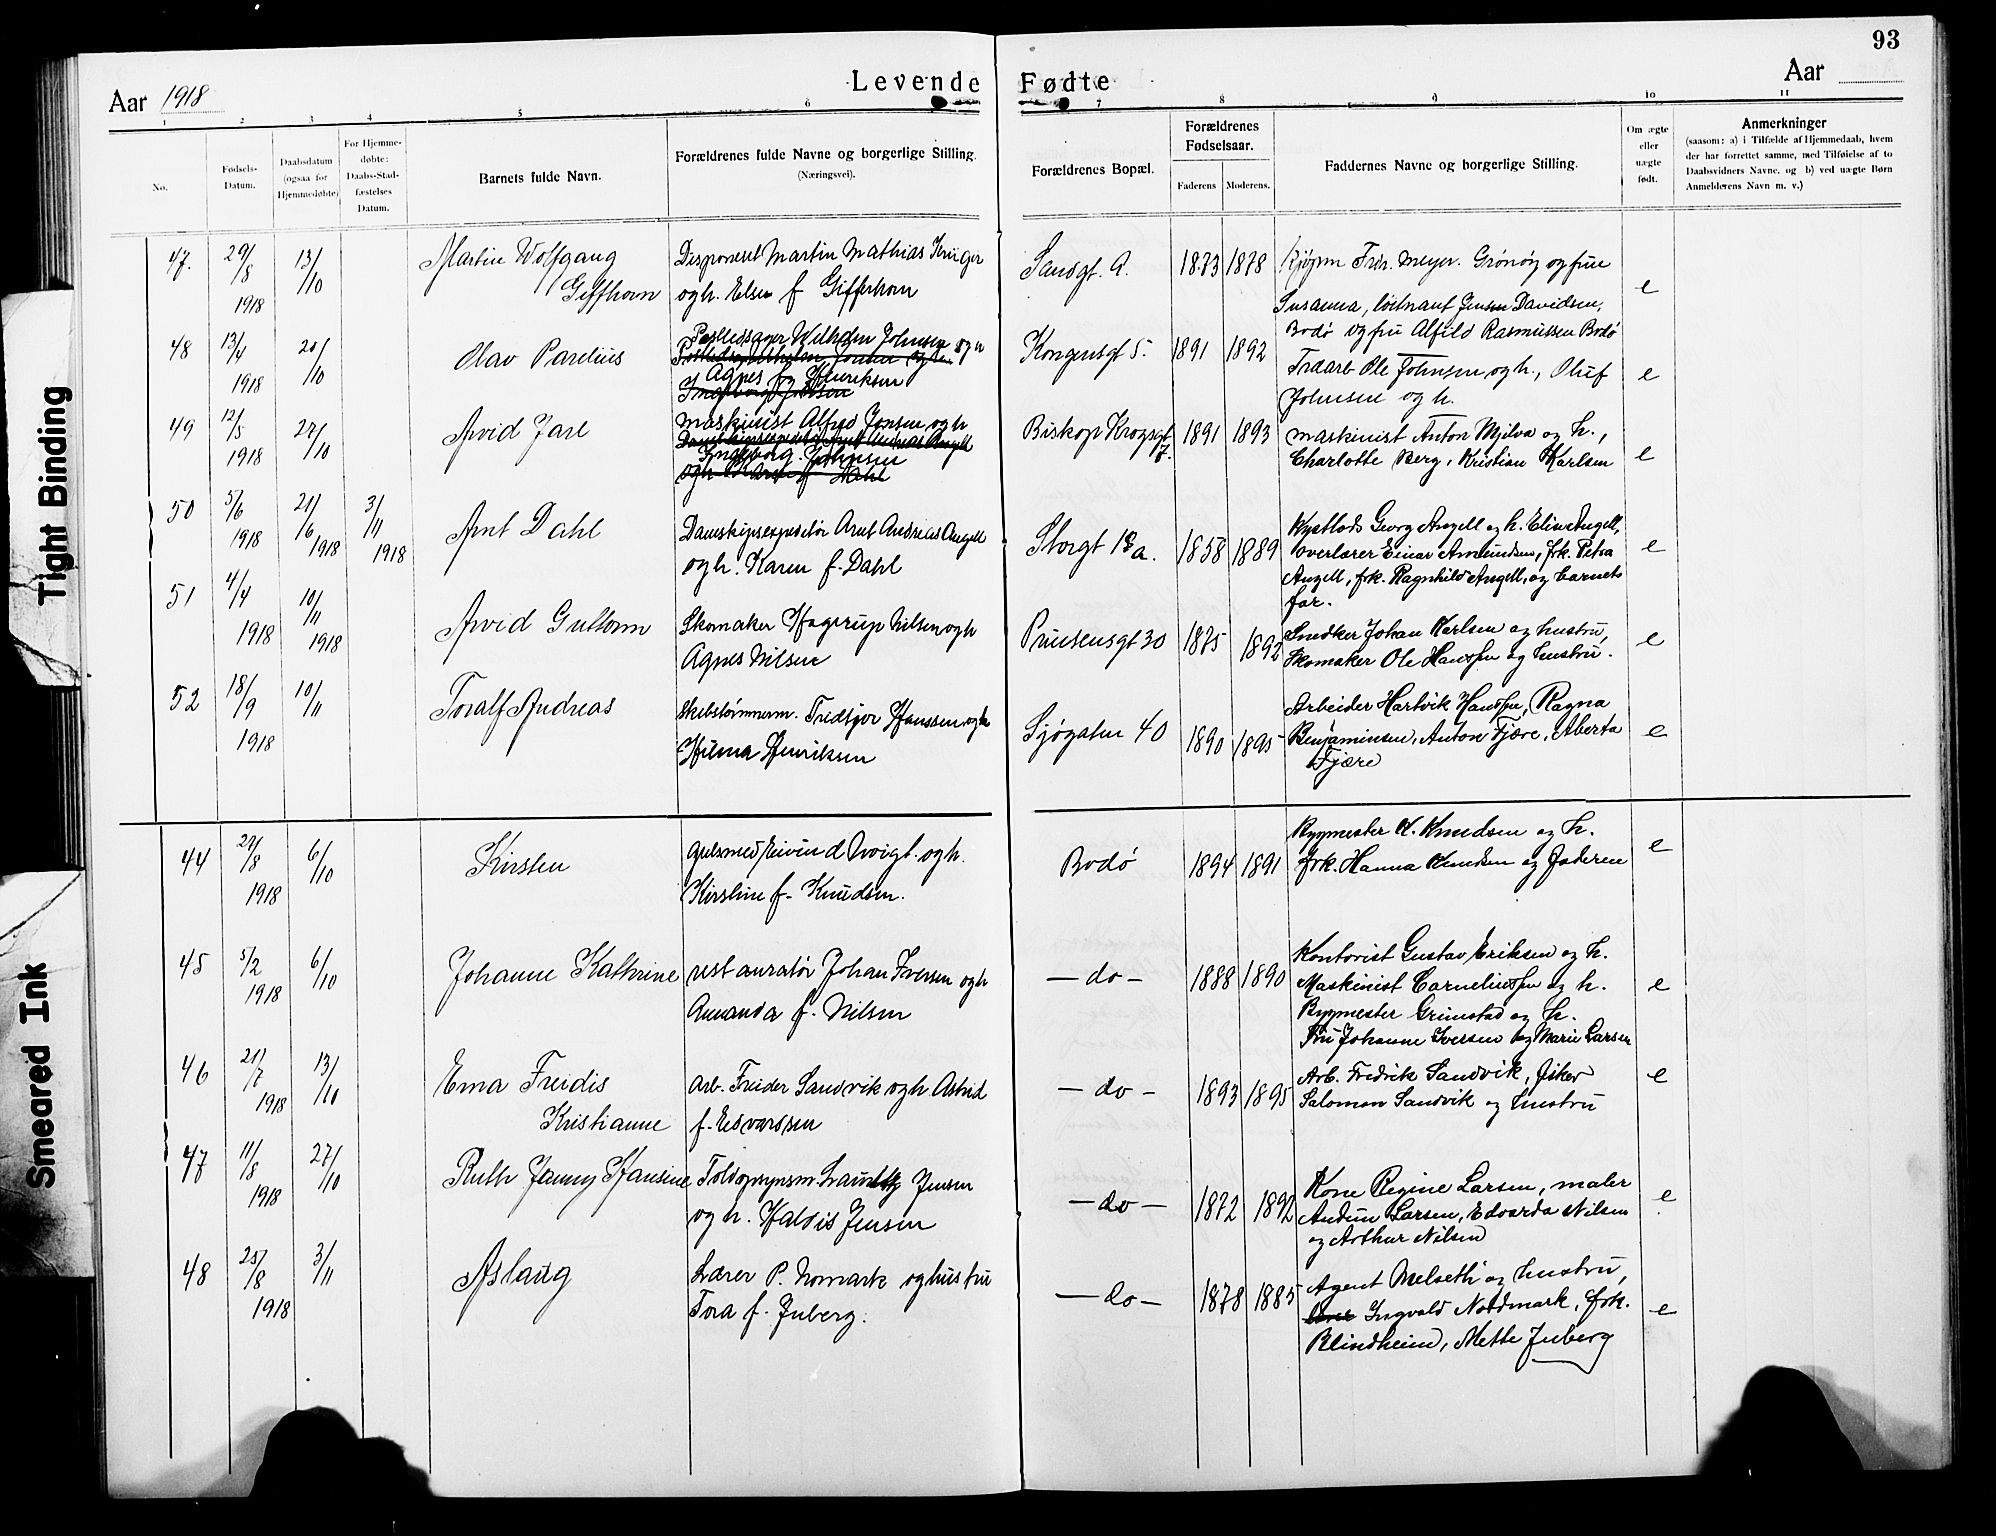 93
Levende Fødte
Aar 1918
Aar
1 2 3 4 5 6 7 8 9 10 11
No.
Fødsels-
Datum.
Daabsdatum
(ogsaa for
Hjemmedøbte)
For Hjemme-
døbte:
Daabs-Stad-
fæstelses
Datum.
Barnets fulde Navn.
Forældrenes fulde Navne og borgerlige Stilling.
(Næringsvei).
Forældrenes Bopæl.
Forældrenes
Fødselsaar.
Faderens. Moderens.
Faddernes Navne og borgerlige Stilling.
Om ægte
eller
uægte
født.
Anmerkninger
(saasom: a) i Tilfælde af Hjemmedaab, hvem
der har forrettet samme, med Tilføielse af to
Daabsvidners Navne. og b) ved uægte Børn
Anmelderens Navn m. v.)
47. 29/8 1918 13/10
Martin Wolfgang
Giffhorn
Disponent Martin Mathias Krüger
og h. Else f Gifferhorn
Sandgt. 9. 1873 1878
Kjøpm Fredr. Meyer. Grønøy og frue
Susanna, løitnant Jensen Davidsen,
Bodø og fru Alfild Rasmussen Bodø
e
48 13/4 1918 20/10
Olav Parelius
Postledsager Wilhelm Johnsen og h
Agnes f. Henriksen
Kongensgt 5. 1891 1892
Fraarb Ole Johnsen og h., Oluf
Johnsen og h.
e
49 12/5 1918 27/10
Arvid Jarl
Maskinist Alfred Jensen og h
Ingeborg. Johnsen
Biskop Krogsgt 7. 1891 1893
maskinist Anton Mjelva og h.,
Charlotte Berg, Kristian Karlsen
e
50 5/6 1918 21/6 1918 3/11 1918
Arnt Dahl
Damskipsexpeditør Arnt Andreas Angell
og h. Karen f. Dahl
Storgt 18a. 1858 1889
Kystlods Georg Angell og h. Elise Angell,
overlærer Einar Amundsen, frk. Petra
Angell, frk. Ragnhild Angell, og barnets
far.
e
51 4/4 1918 10/11 1918
Arvid Guttorm
Skomaker Hagerup Nilsen og h
Agnes Nilsen
Prinsensgt 30 1875 1892
Snedker Johan Karlsen og hustru,
skomaker Ole Hanssen og hustru.
e
52 18/9 1918 10/11
Toralf Andreas
Skibstømmerm. Fredtjor Hanssen og h
Hilma Henriksen
Sjøgaten 40 1890 1895
Arbeider Hartvik Hanssen, Ragna
Benjaminsen, Anton Fjære, Aberta
Fjære
e
44 29/8 1918 6/10
Kirsten
Gulsmed Eivind Voigt og h.
Kirstine f. Knudsen.
Bodø 1894 1891
Bypmester K. Knudsen og h.
frk. Hanna Knudsen og faderen
e
45 5/2 1918 6/10
Johanne Kathrine
restauratør Johan Iversen og h
Amanda f. Nilsen
— do — 1888 1890
Kontorist Gustav Eriksen og h.
Maskinist Corneliussen og h.
Bypmester Grimstad og h.
Fru Johanne Iversen og Marie Larsen
e
46 21/7 1918 13/10
Erna Freidis
Kristianne
Arb. Freider Sandvik og h Astrid
f. Edvardsen
— do — 1893 1895
Arb. Fredrik Sandvik, fisker
Salomon Sandvik og hustru
e
47 11/8 1918 27/10
Ruth Jenny Hansine
Toldopsynsm. Lauritz Jensen
og h. Haldis Jensen
— do — 1872 1892
Kone Regine Larsen, maler
Audun Larsen, Edvarda Nilsen
og Arthur Nilsen
e
48 25/8 1918 3/11
Aslaug
Lærer P. Nomark og hustru
Tora f. Juberg.
— do — 1878 1885
Agent Melseth og hustru,
lærer Ingvald Notdmark, frk.
Blindheim, Mette Juberg
e
Tight Binding
Smeared Ink